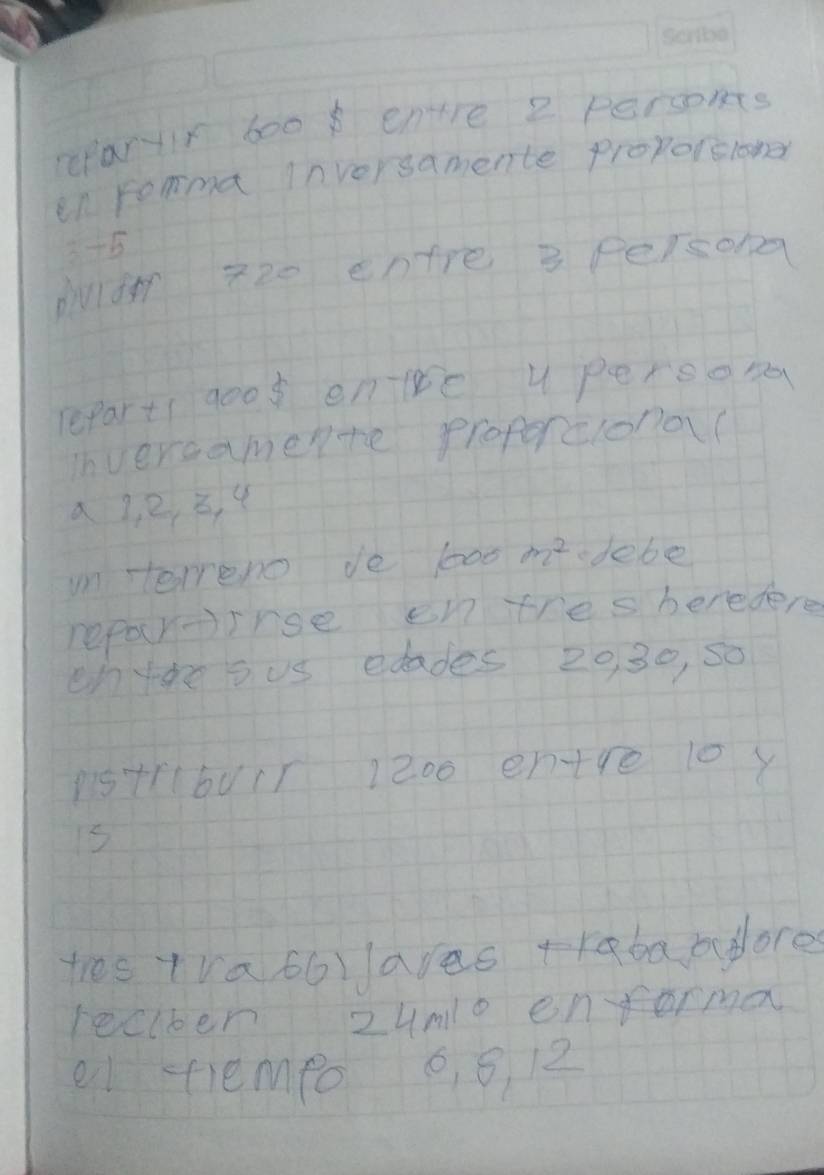 Scribe
repartir 600 $ entre 2 personas
en forma inversamente proporsional
3-5
dividir 720 entre 3 persona
reparti 900$ entre 4 persona
inversamente proporcional
a 1,2,3,4
un terreno de 1000 m² debe
repartirse en tres heredere
entre sus edades 20,30,50
Distribuir 1200 entre 10 y
15
tres trabajadores
reciben 24mil en forma
el tiempo 6,8,12